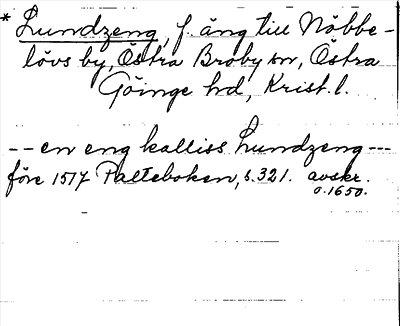 * Lundzeng, f. äng till Nöbbe-
lövs by, Östra Broby sn, Östra
Göinge hd, Krist. l.
-- en eng kalliss Lundzeng ---
före 1517 Palteboken, s. 321. avskr.
o. 1650.